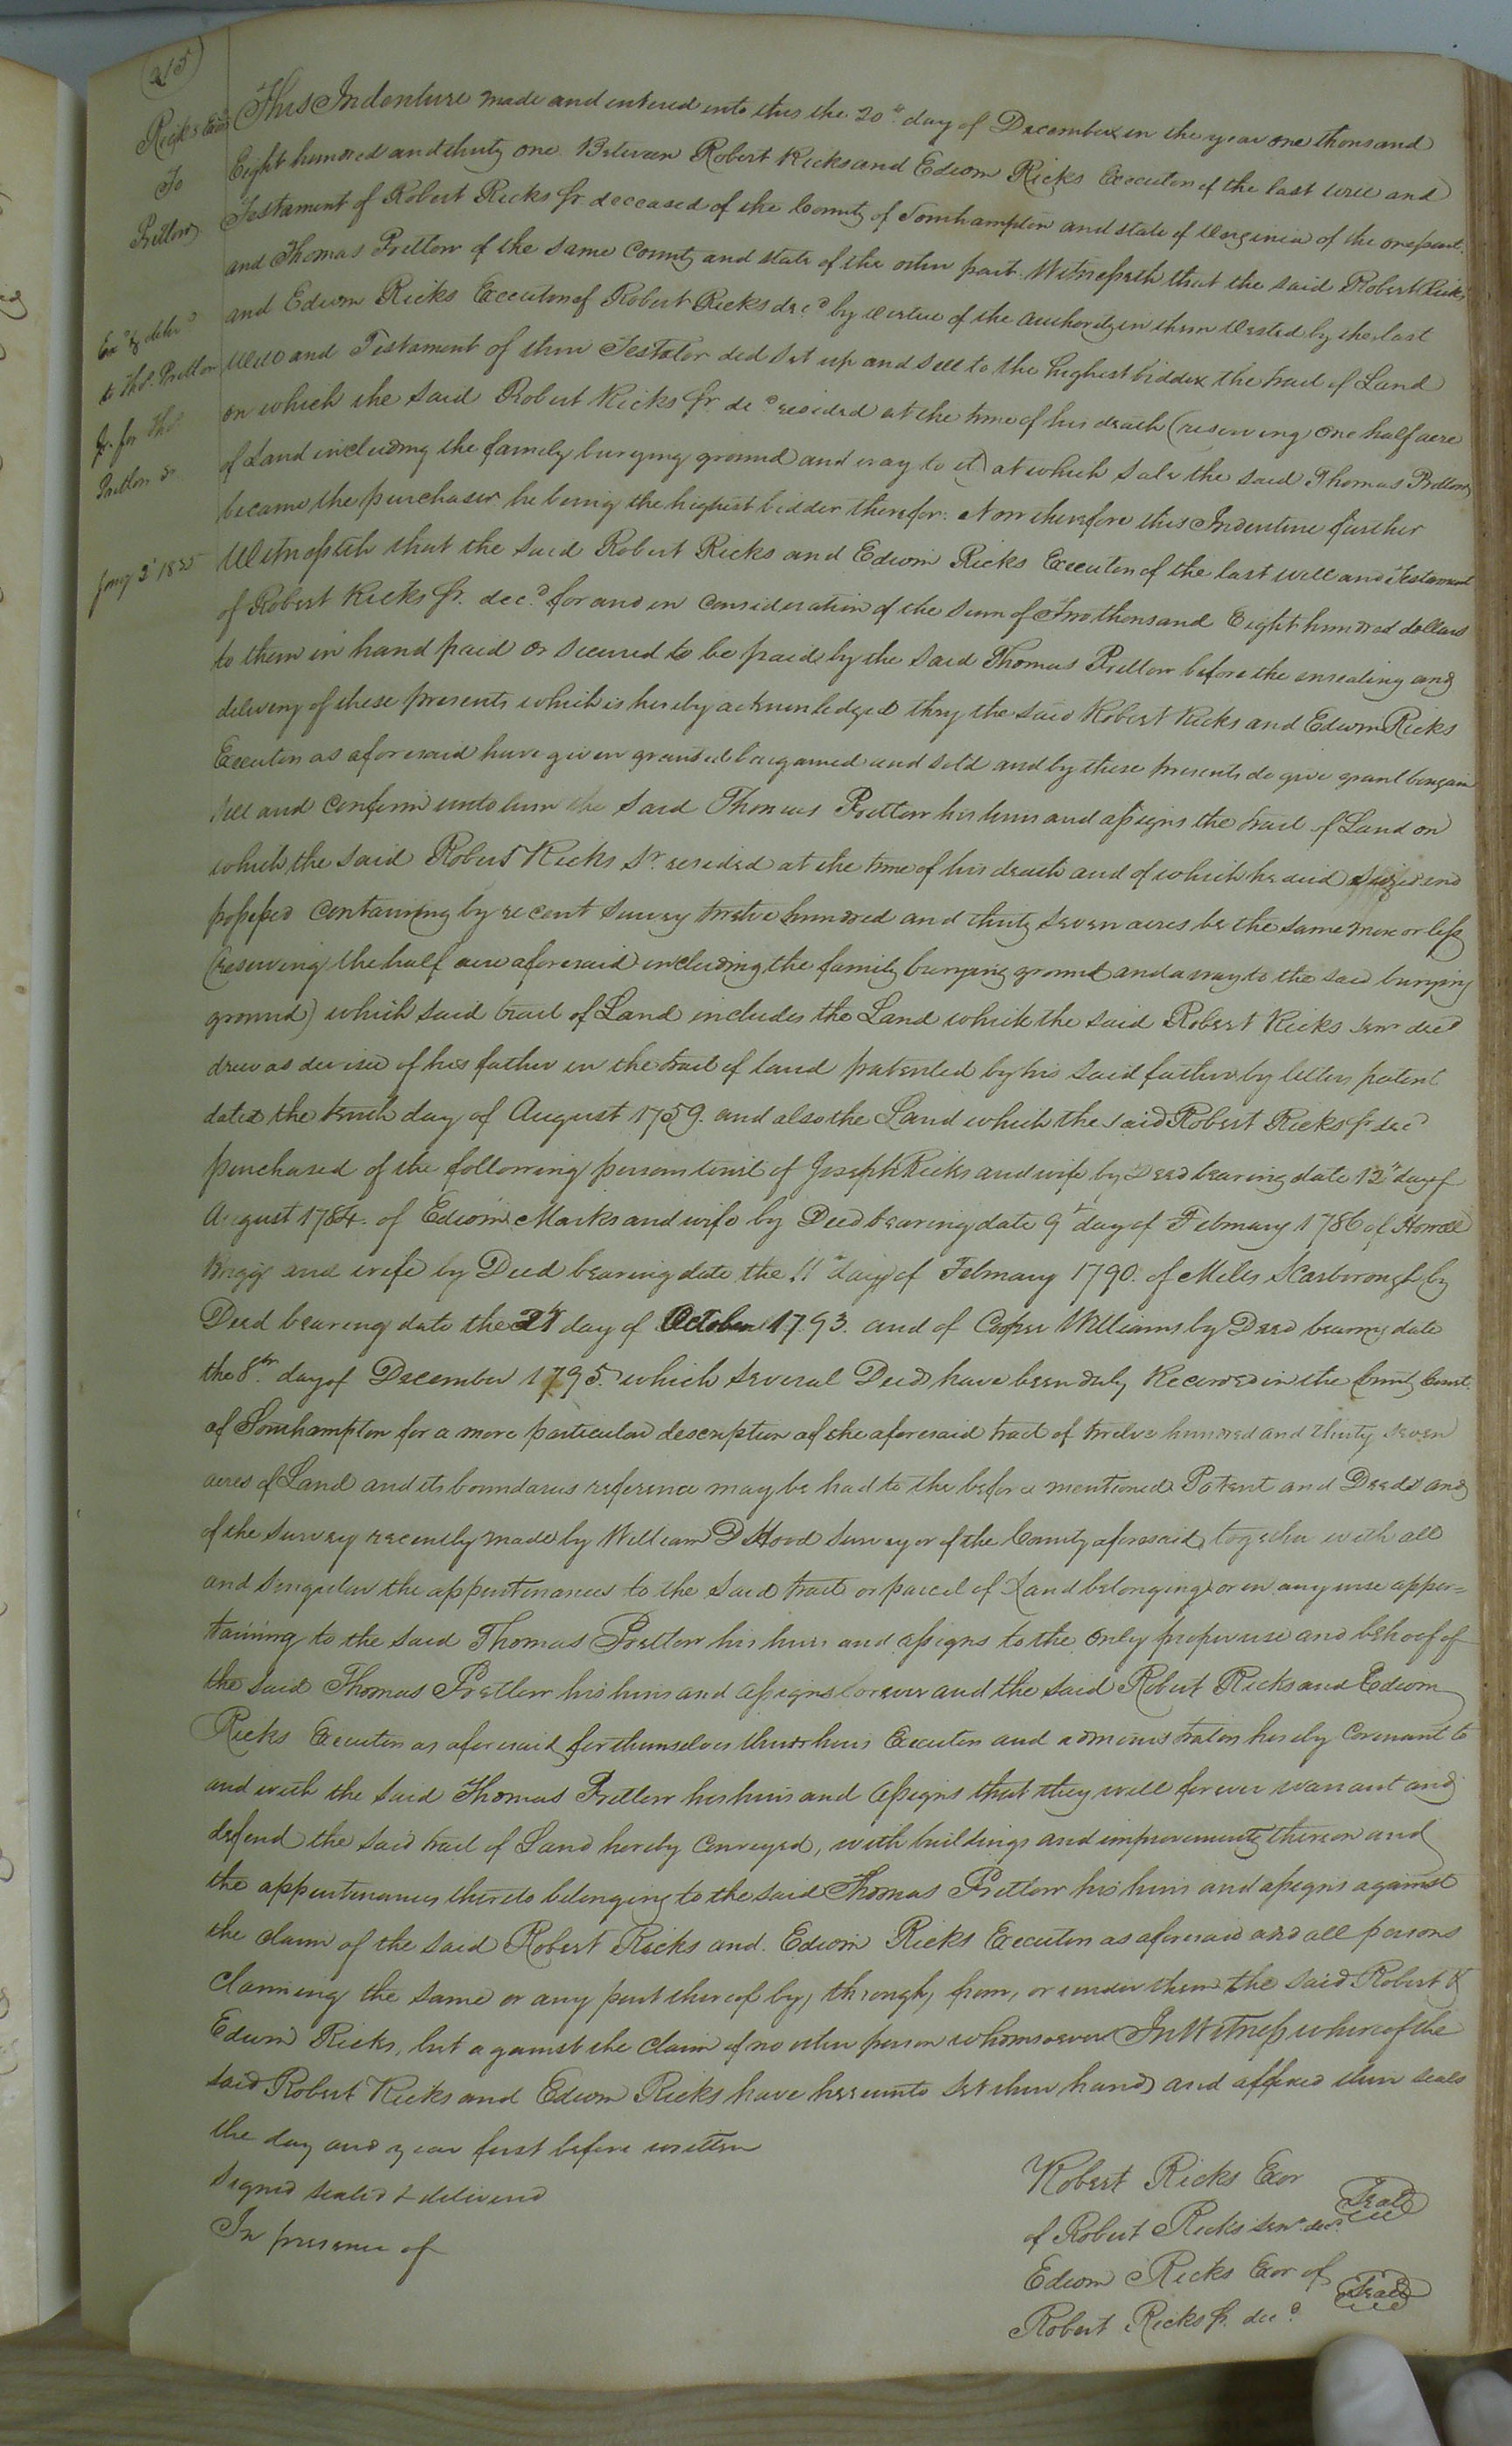 215
Ricks Exors
To
Pretlow
Exd & delivd
to Thos. Pretlow
Jr. for Thos
Pretlow Sr
Jany 2d 1835
This Indenture made and entered into this the 20th day of December in the year one thousand
Eight hundred and thirty one Between Robert Ricks and Edwin Ricks Executors of the last will and
Testament of Robert Ricks Sr. deceased of the County of Southampton and state of Virginia of the one part
and Thomas Pretlow of the same County and state of the other part. Witnesseth that the said Robert Ricks
and Edwin Ricks Executors of Robert Ricks decd by virtue of the authority in them vested by the last
Will and Testament of their Testator did set up and sell to the highest bidder the tract of Land
on which the said Robert Ricks Sr. decd resided at the time of his death (reserving one half acre
of Land including the family burying ground and way to it) at which sale the said Thomas Pretlow
became the purchaser he being the highest bidder therefor. Now therefore this Indenture further
Witnesseth that the said Robert Ricks and Edwin Ricks Executors of the last will and Testament
of Robert Ricks Sr. decd for and in consideration of the sum of Two thousand Eight hundred dollars
to them in hand paid or secured to be paid by the said Thomas Pretlow before the ensealing and
delivery of these presents which is hereby acknowledged they the said Robert Ricks and Edwin Ricks
Executors as aforesaid have given granted bargained and sold and by these presents do give grant bargain
sell and confirm unto him the said Thomas Pretlow his heirs and assigns the tract of Land on
which the said Robert Ricks Sr. resided at the time of his death and of which he died seized and
possessed containing by recent survey twelve hundred and thirty seven acres be the same more or less
(reserving the half acre aforesaid including the family burying ground and a way to the said burying
ground) which said tract of Land includes the Land which the said Robert Ricks Senr decd
drew as devisee of his father in the tract of land patented by his said father by letters patent
dated the tenth day of August 1759. and also the Land which the said Robert Ricks Sr decd
purchased of the following persons towit of Joseph Ricks and wife by Deed bearing date 12th day of
August 1784. of Edwin Marks and wife by Deed bearing date 9th day of February 1786 of Howell
Briggs and wife by Deed bearing date the 11th day of February 1790. of Miles Scarborough by
Deed bearing date the day of October 1793. and of Cooper Williams by Deed bearing date
the 8th. day of December 1795. which several Deeds have been duly Recorded in the County Court
of Southampton for a more particular description of the aforesaid tract of twelve hundred and thirty seven
acres of Land and its boundaries reference may be had to the before mentioned Patent and Deeds and
of the survey recently made by William D Hood Surveyor of the County aforesaid, together with all
and singular the appurtenances to the said tract or parcel of Land belonging or in any wise apper=
taining to the said Thomas Pretlow his heirs and assigns to the only proper use and behoof of
the said Thomas Pretlow his heirs and assigns forever and the said Robert Ricks and Edwin
Ricks Executors as aforesaid for themselves their heirs Executors and administrators hereby covenant to
and with the said Thomas Pretlow his heirs and assigns that they will forever warrant and
defend the said tract of Land hereby conveyed, with buildings and improvements thereon and
the appurtenances thereto belonging to the said Thomas Pretlow his heirs and assigns against
the claim of the said Robert Ricks and. Edwin Ricks Executors as aforesaid and all persons
claiming the same or any part thereof by, through, from, or under them the said Robert &
Edwin Ricks, but against the claim of no other person whomsoever In Witness whereof the
said Robert Ricks and Edwin Ricks have hereunto set their hands and affixed their seals
the day and year first before written
Signed sealed & delivered
In presence of
Robert Ricks Exor
of Robert Ricks Senr decd. Seal
Edwin Ricks Exor of
Robert Ricks Sr. decd. Seal